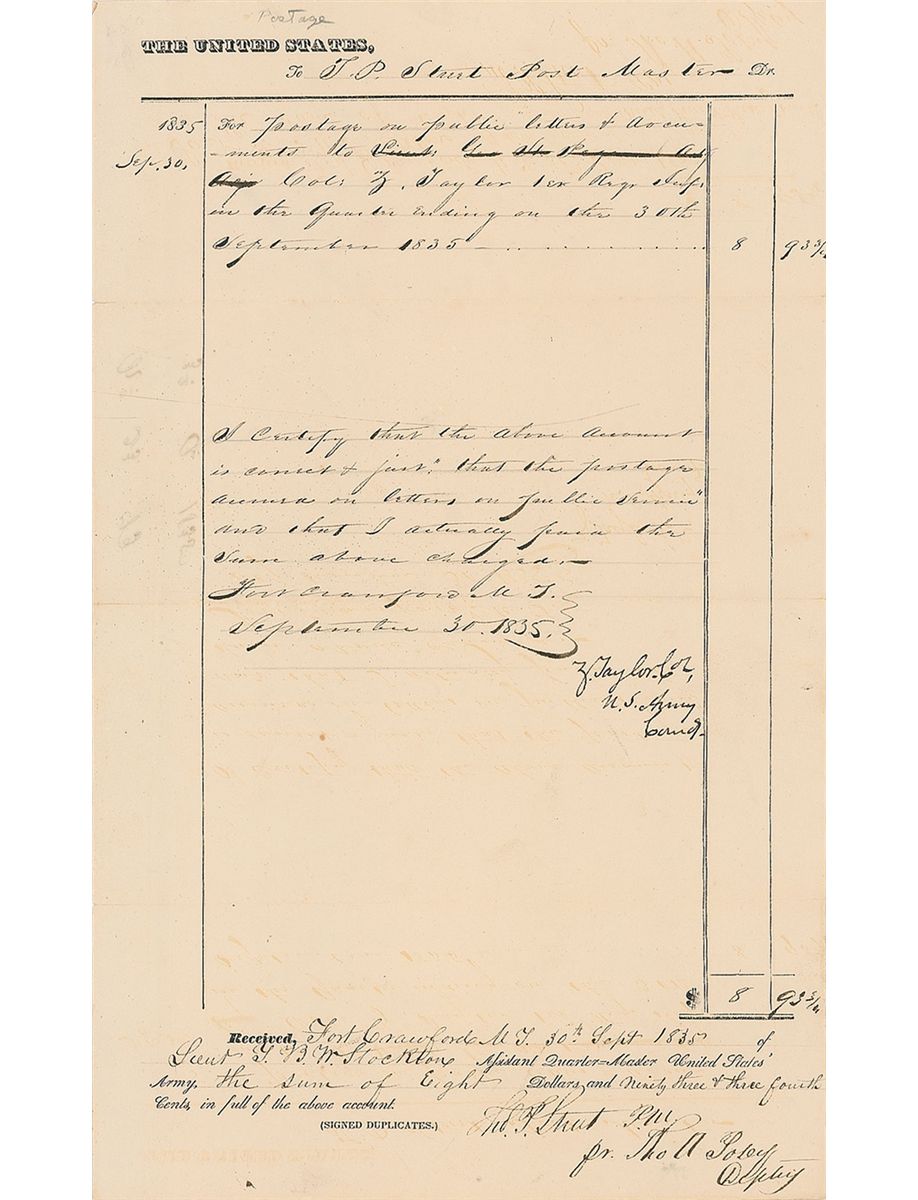 Postage
THE UNITED STATES,
To T. P. Street Post Master Dr.
1835 For postage on public letters & docu-
Sep. 30, -ments to Lieut: Geo W.
Col: Z. Taylor 1er Regt Inf.
in the Quarter Ending on the 30th
September 1835 8 93 3/4
I Certify that the above account
is correct & just." that the postage
accrued on letters on public service"
and that I actually paid the
Sum above charged.
Fort Crawford M T.
September 30. 1835.
Z. Taylor. Col,
U. S. Army
Comdg.
$ 8 93 3/4
Received, Fort Crawford M T. 30th Sept 1835 of
Lieut T B W Stockton Assistant Quarter=Master United States'
Army, the sum of Eight Dollars and Ninety three & three fourth
Cents, in full of the above account.
(SIGNED DUPLICATES.) Tho. P. Street P. M
pr. Tho A
Deputy